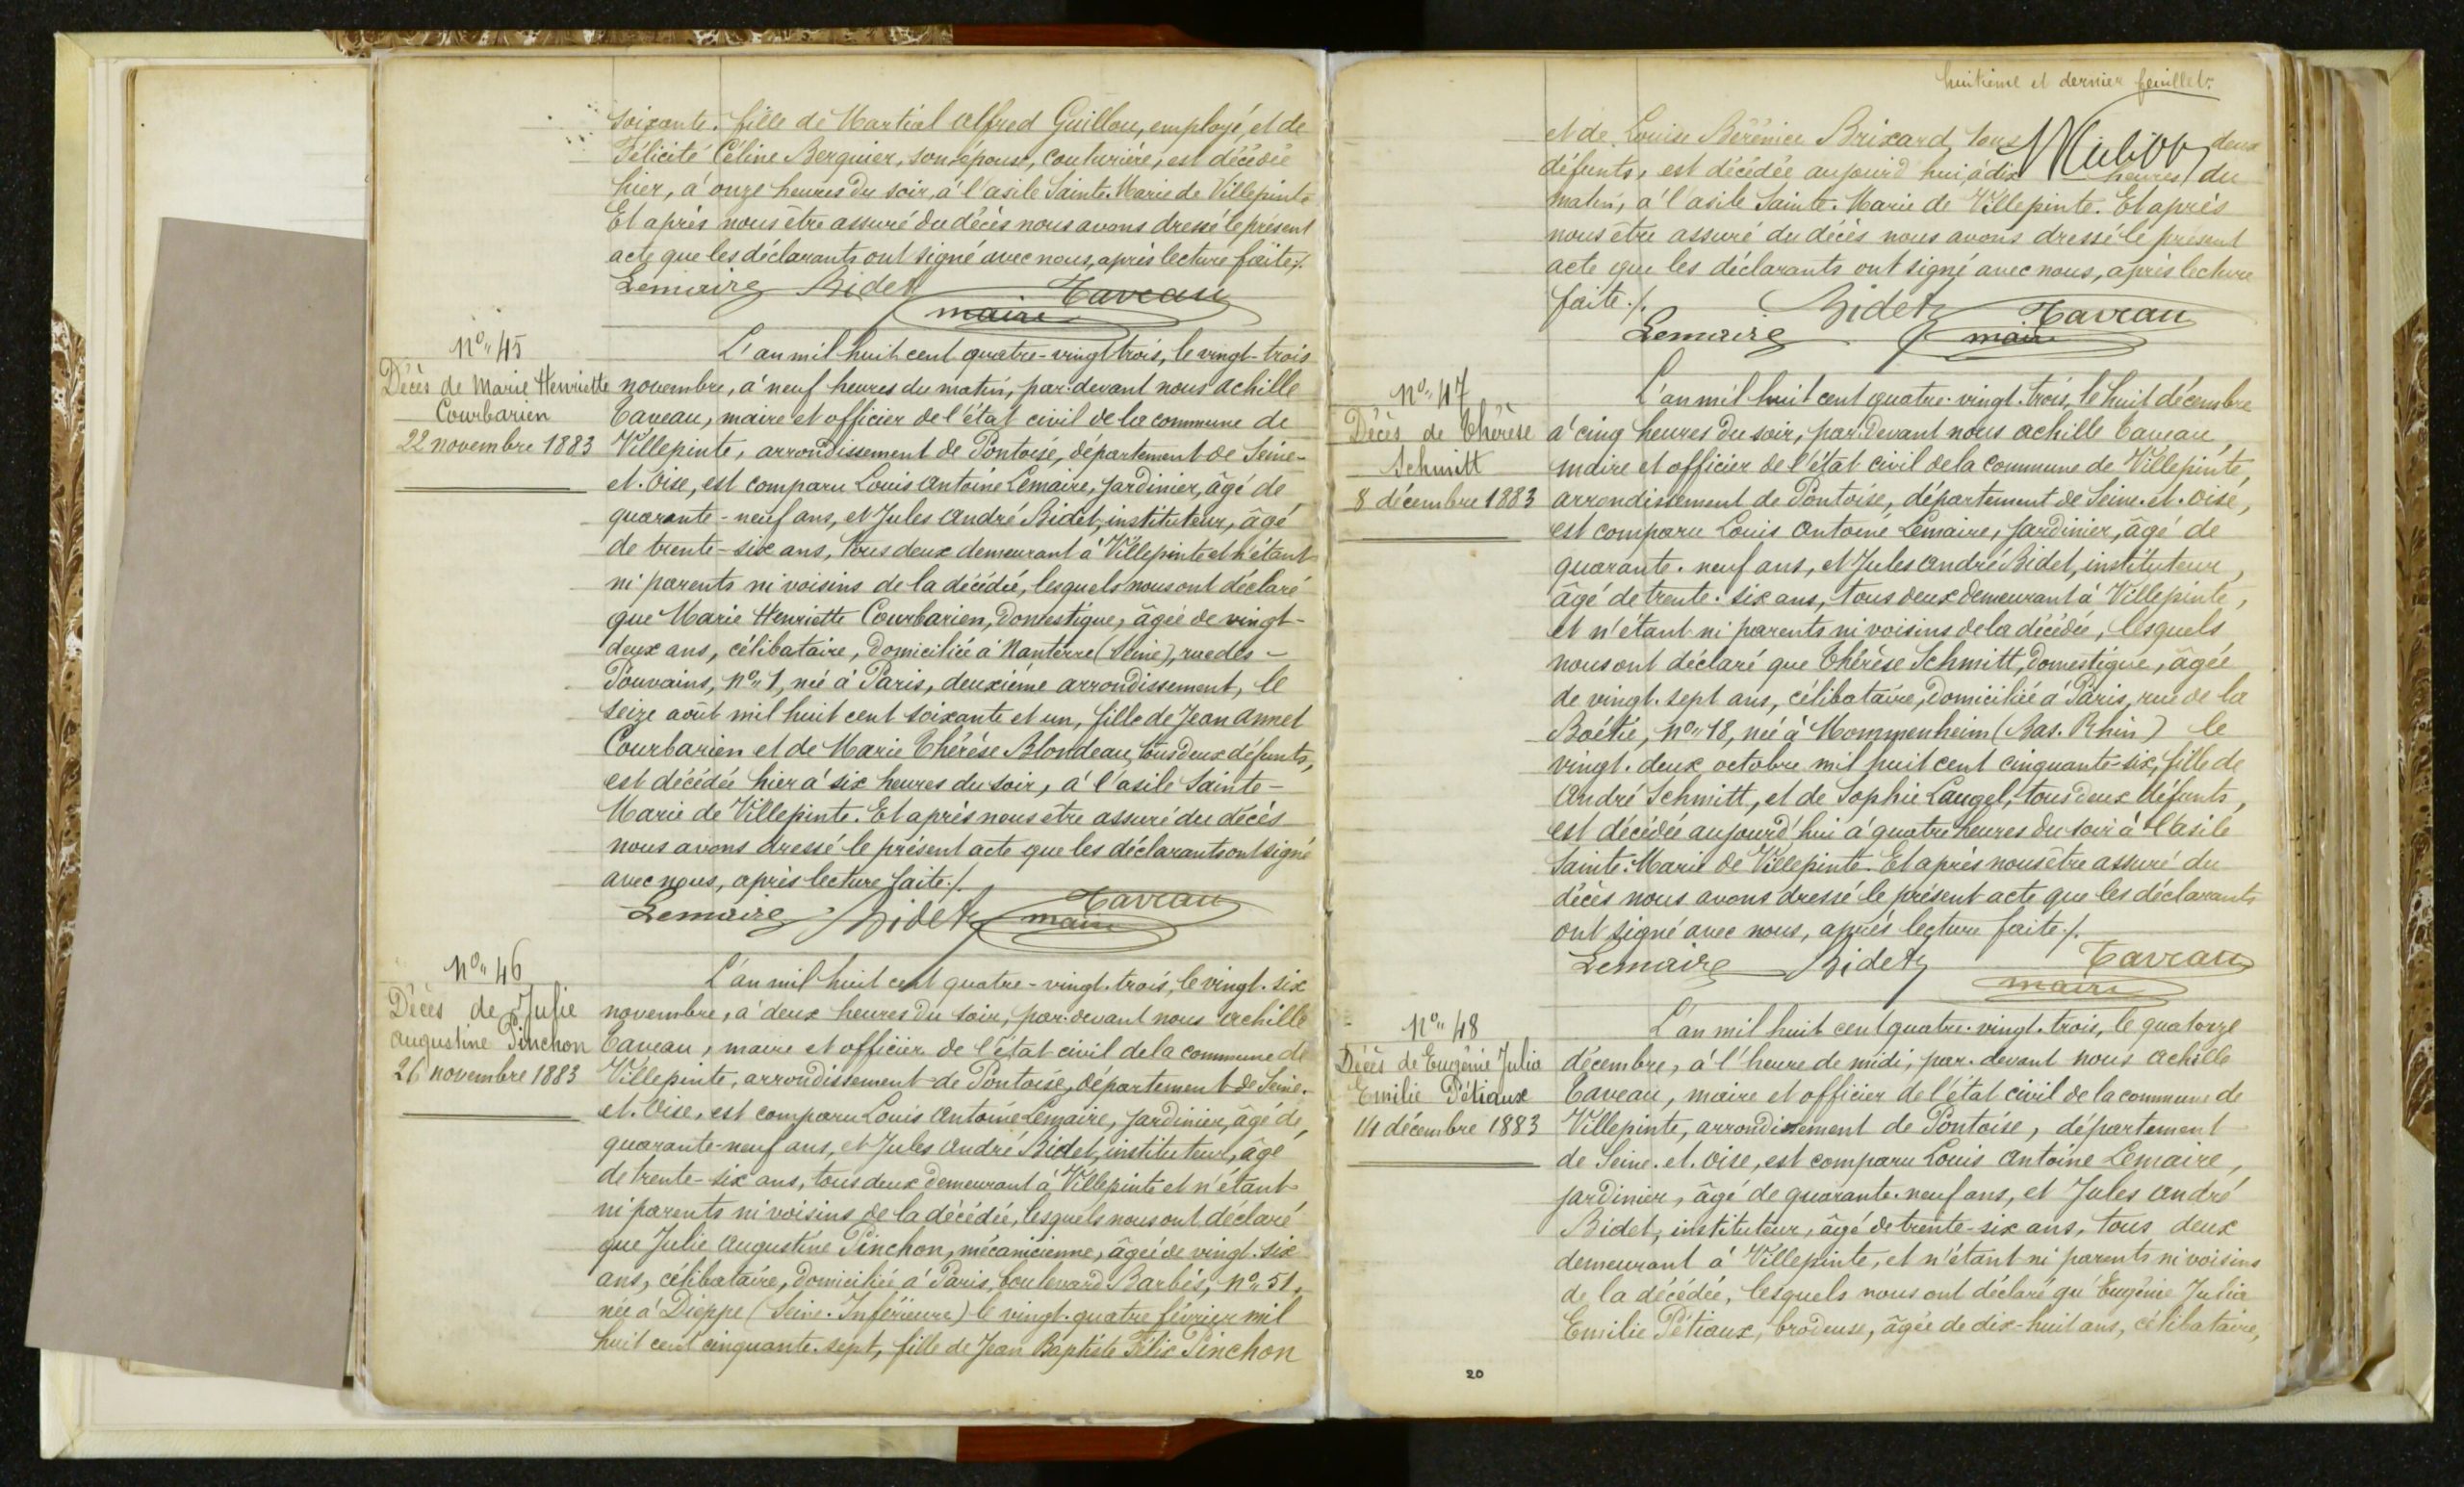 soixante. fille de Martial Alfred Guillou, employé, et de
Félicité Céline Berquier, son épouse, couturière, est décédée
hier, à onze heures du soir, à l'asile Sainte-Marie de Villepinte
Et après nous être assuré du décès nous avons dressé le présent
acte que les déclarants ont signé avec nous, après lecture faite./.
Lemaire Bidet Taveau
maire
N° 45
Décès de Marie Henriette
Courbarien
22 novembre 1883
L'an mil huit cent quatre-vingt trois, le vingt-trois
novembre, à neuf heures du matin, par-devant nous Achille
Taveau, maire et officier de l'état civil de la commune de
Villepinte, arrondissement de Pontoise, département de Seine-
et-Oise, est comparu Louis Antoine Lemaire, jardinier, âgé de
quarante-neuf ans, et Jules André Bidet, instituteur, âgé
de trente-six ans, tous deux demeurant à Villepinte et n'étant
ni parents ni voisins de la décédée, lesquels nous ont déclaré
que Marie Henriette Courbarien, domestique, âgée de vingt-
deux ans, célibataire, domiciliée à Nanterre (Seine), rue des-
Pouvains, N° 1, née à Paris, deuxième arrondissement, le
seize août mil huit cent soixante et un, fille de Jean Annet
Courbarien et de Marie Thérèse Blondeau, tous deux défunts,
est décédée hier à six heures du soir, à l'asile Sainte-
Marie de Villepinte. Et après nous être assuré du décès
nous avons dressé le présent acte que les déclarants ont signé
avec nous, après lecture faite./.
Lemaire Bidet Taveau
maire
N° 46
Décès de Julie
Augustine Pinchon
26 novembre 1883
L'an mil huit cent quatre-vingt-trois, le vingt-six
novembre, à deux heures du soir, par-devant nous Achille
Taveau, maire et officier de l'état civil de la commune de
Villepinte, arrondissement de Pontoise, département de Seine-
et-Oise, est comparu Louis Antoine Lemaire, jardinier, âgé de
quarante-neuf ans, et Jules André Bidet, instituteur, âgé
de trente-six ans, tous deux demeurant à Villepinte et n'étant
ni parents ni voisins de la décédée, lesquels nous ont déclaré
que Julie Augustine Pinchon, mécanicienne, âgée de vingt-six
ans, célibataire, domiciliée à Paris, boulevard Barbès, N° 51,
née à Dieppe (Seine-Inférieure) le vingt-quatre février mil
huit cent cinquante-sept, fille de Jean Baptiste Félix Pinchon
huitième et dernier feuillet
et de Louise Bérénice Brixard, tous deux
défunts, est décédée aujourd'hui, à dix heures du
matin, à l'asile Sainte-Marie de Villepinte. Et après
nous être assuré du décès nous avons dressé le présent
acte que les déclarants ont signé avec nous, après lecture
faite./.
Lemaire Bidet Taveau
maire
N° 47
Décès de Thérèse
Schmitt
8 décembre 1883
L'an mil huit cent quatre-vingt-trois, le huit décembre
à cinq heures du soir, par-devant nous Achille Taveau,
maire et officier de l'état civil de la commune de Villepinte,
arrondissement de Pontoise, département de Seine-et-Oise,
est comparu Louis Antoine Lemaire, jardinier, âgé de
quarante-neuf ans, et Jules André Bidet, instituteur,
âgé de trente-six ans, tous deux demeurant à Villepinte,
et n'étant ni parents ni voisins de la décédée, lesquels
nous ont déclaré que Thérèse Schmitt, domestique, âgée
de vingt-sept ans, célibataire, domiciliée à Paris, rue de la
Boétie, N° 18, née à Mommenheim (Bas-Rhin) le
vingt-deux octobre mil huit cent cinquante-six, fille de
André Schmitt, et de Sophie Laugel, tous deux défunts,
est décédée aujourd'hui à quatre heures du soir à l'asile
Sainte-Marie de Villepinte. Et après nous être assuré du
décès nous avons dressé le présent acte que les déclarants
ont signé avec nous, après lecture faite./.
Lemaire Bidet Taveau
maire
N° 48
Décès de Eugénie Julia
Emilie Pétiaux
14 décembre 1883
L'an mil huit cent quatre-vingt-trois, le quatorze
décembre, à l'heure de midi, par-devant nous Achille
Taveau, maire et officier de l'état civil de la commune de
Villepinte, arrondissement de Pontoise, département
de Seine-et-Oise, est comparu Louis Antoine Lemaire,
jardinier, âgé de quarante-neuf ans, et Jules André
Bidet, instituteur, âgé de trente-six ans, tous deux
demeurant à Villepinte, et n'étant ni parents ni voisins
de la décédée, lesquels nous ont déclaré qu'Eugénie Julia
Emilie Pétiaux, brodeuse, âgée de dix-huit ans, célibataire,
20